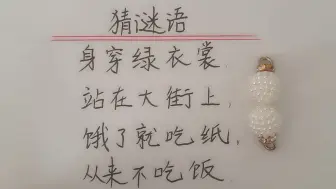 猜谜语
身穿绿衣裳,
站在大街上,
饿了就吃纸,
从来不吃饭